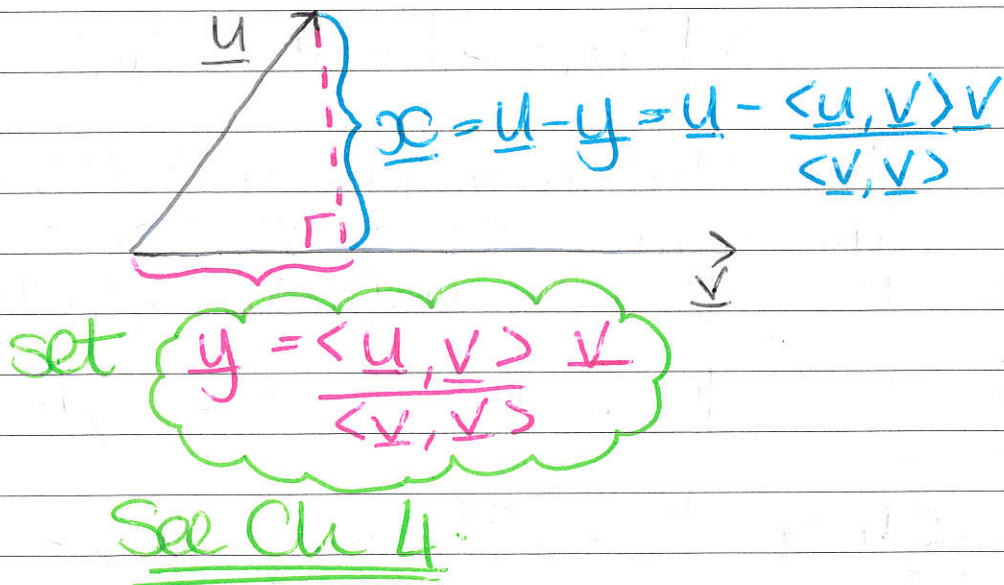 u
x = u - y = u - <u, v> v
<v, v>
v
set y = <u, v> v
<v, v>
See Ch 4.